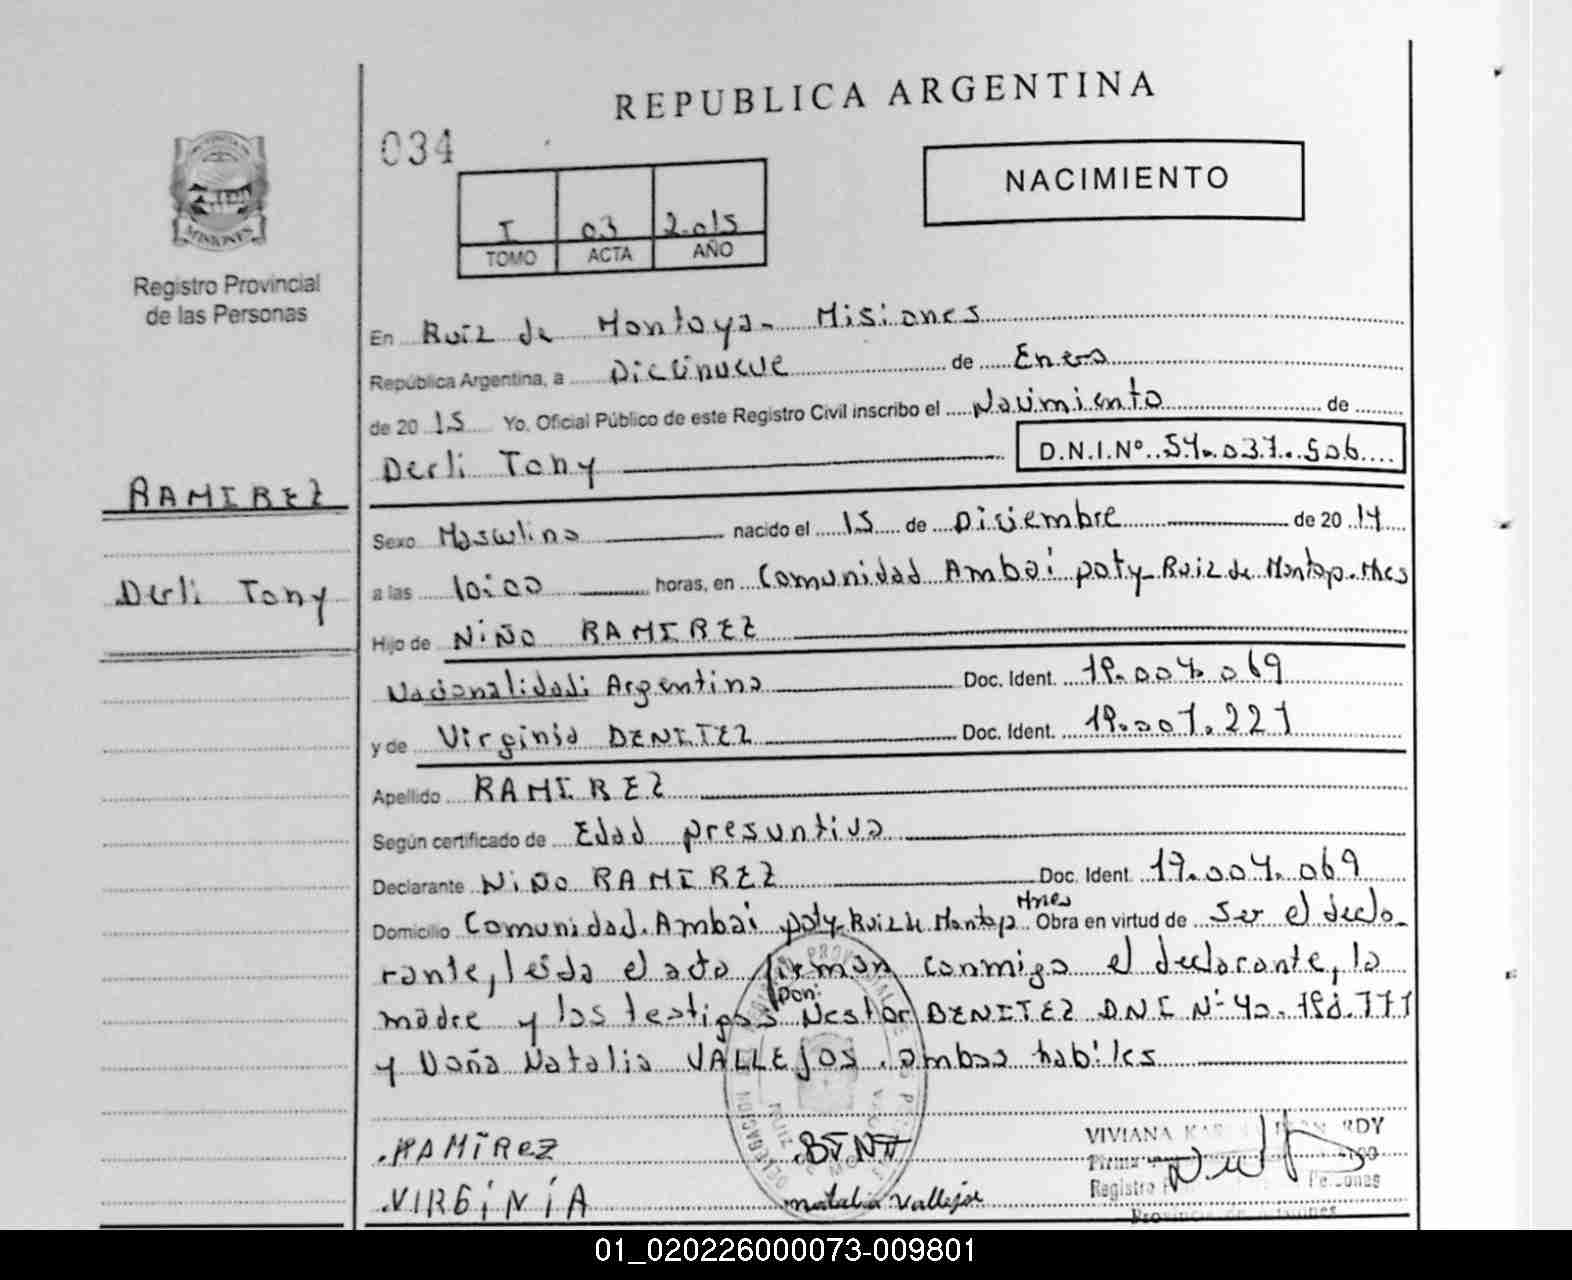 REPUBLICA ARGENTINA
034
NACIMIENTO
I 03 2.015
TOMO ACTA AÑO
MISIONES
Registro Provincial
de las Personas
En Ruiz de Montoya - Misiones
República Argentina, a Diecinueve de Enero
de 20 15 Yo, Oficial Público de este Registro Civil inscribo el Nacimiento de
Derli Tony D.N.I.Nº 54.037.506
RAMIREZ
Derli Tony
Sexo Masculino nacido el 15 de Diciembre de 20 14
a las 10:00 horas, en Comunidad Ambai poty - Ruiz de Montoya - Mnes
Hijo de NiÑo RAMIREZ
Nacionalidad: Argentina Doc. Ident. 19.004.069
y de Virginia BENITEZ Doc. Ident. 19.007.221
Apellido RAMIREZ
Según certificado de Edad presuntiva
Declarante NiÑo RAMIREZ Doc. Ident. 19.004.069
Domicilio Comunidad Ambai poty - Ruiz de Montoya Mnes Obra en virtud de Ser el decla-
rante, leida el acta firman conmigo el declarante, la
madre y los testigos Don: Nestor BENITEZ D.N.I Nº 40.198.777
y Doña Natalia VALLEJOS. ambos habiles
RAMIREZ
VIRGINIA
natalia vallejos
VIVIANA
Registro Personas
01_020226000073-009801